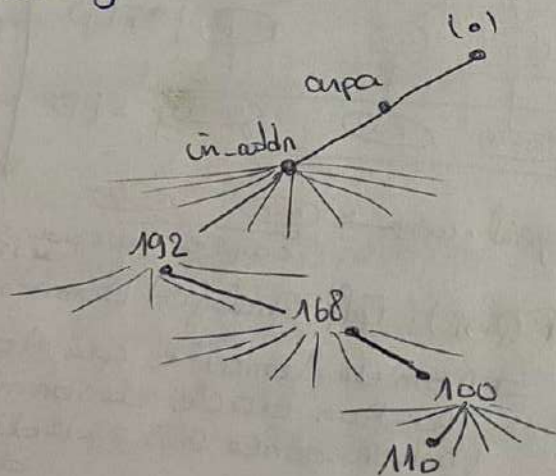 (.)
arpa
in_addr
192
168
100
110